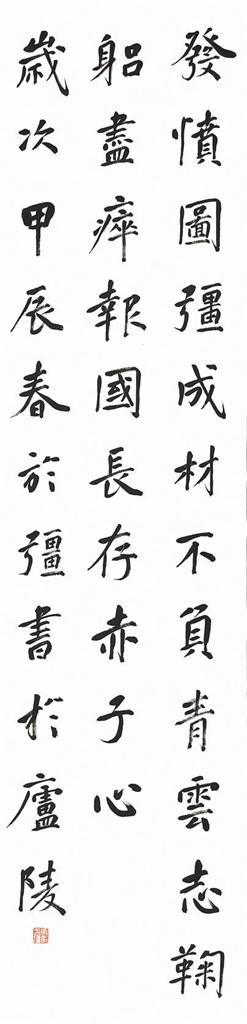 發憤圖彊成材不負青雲志鞠
躬盡瘁報國長存赤子心
歲次甲辰春於彊書於廬陵